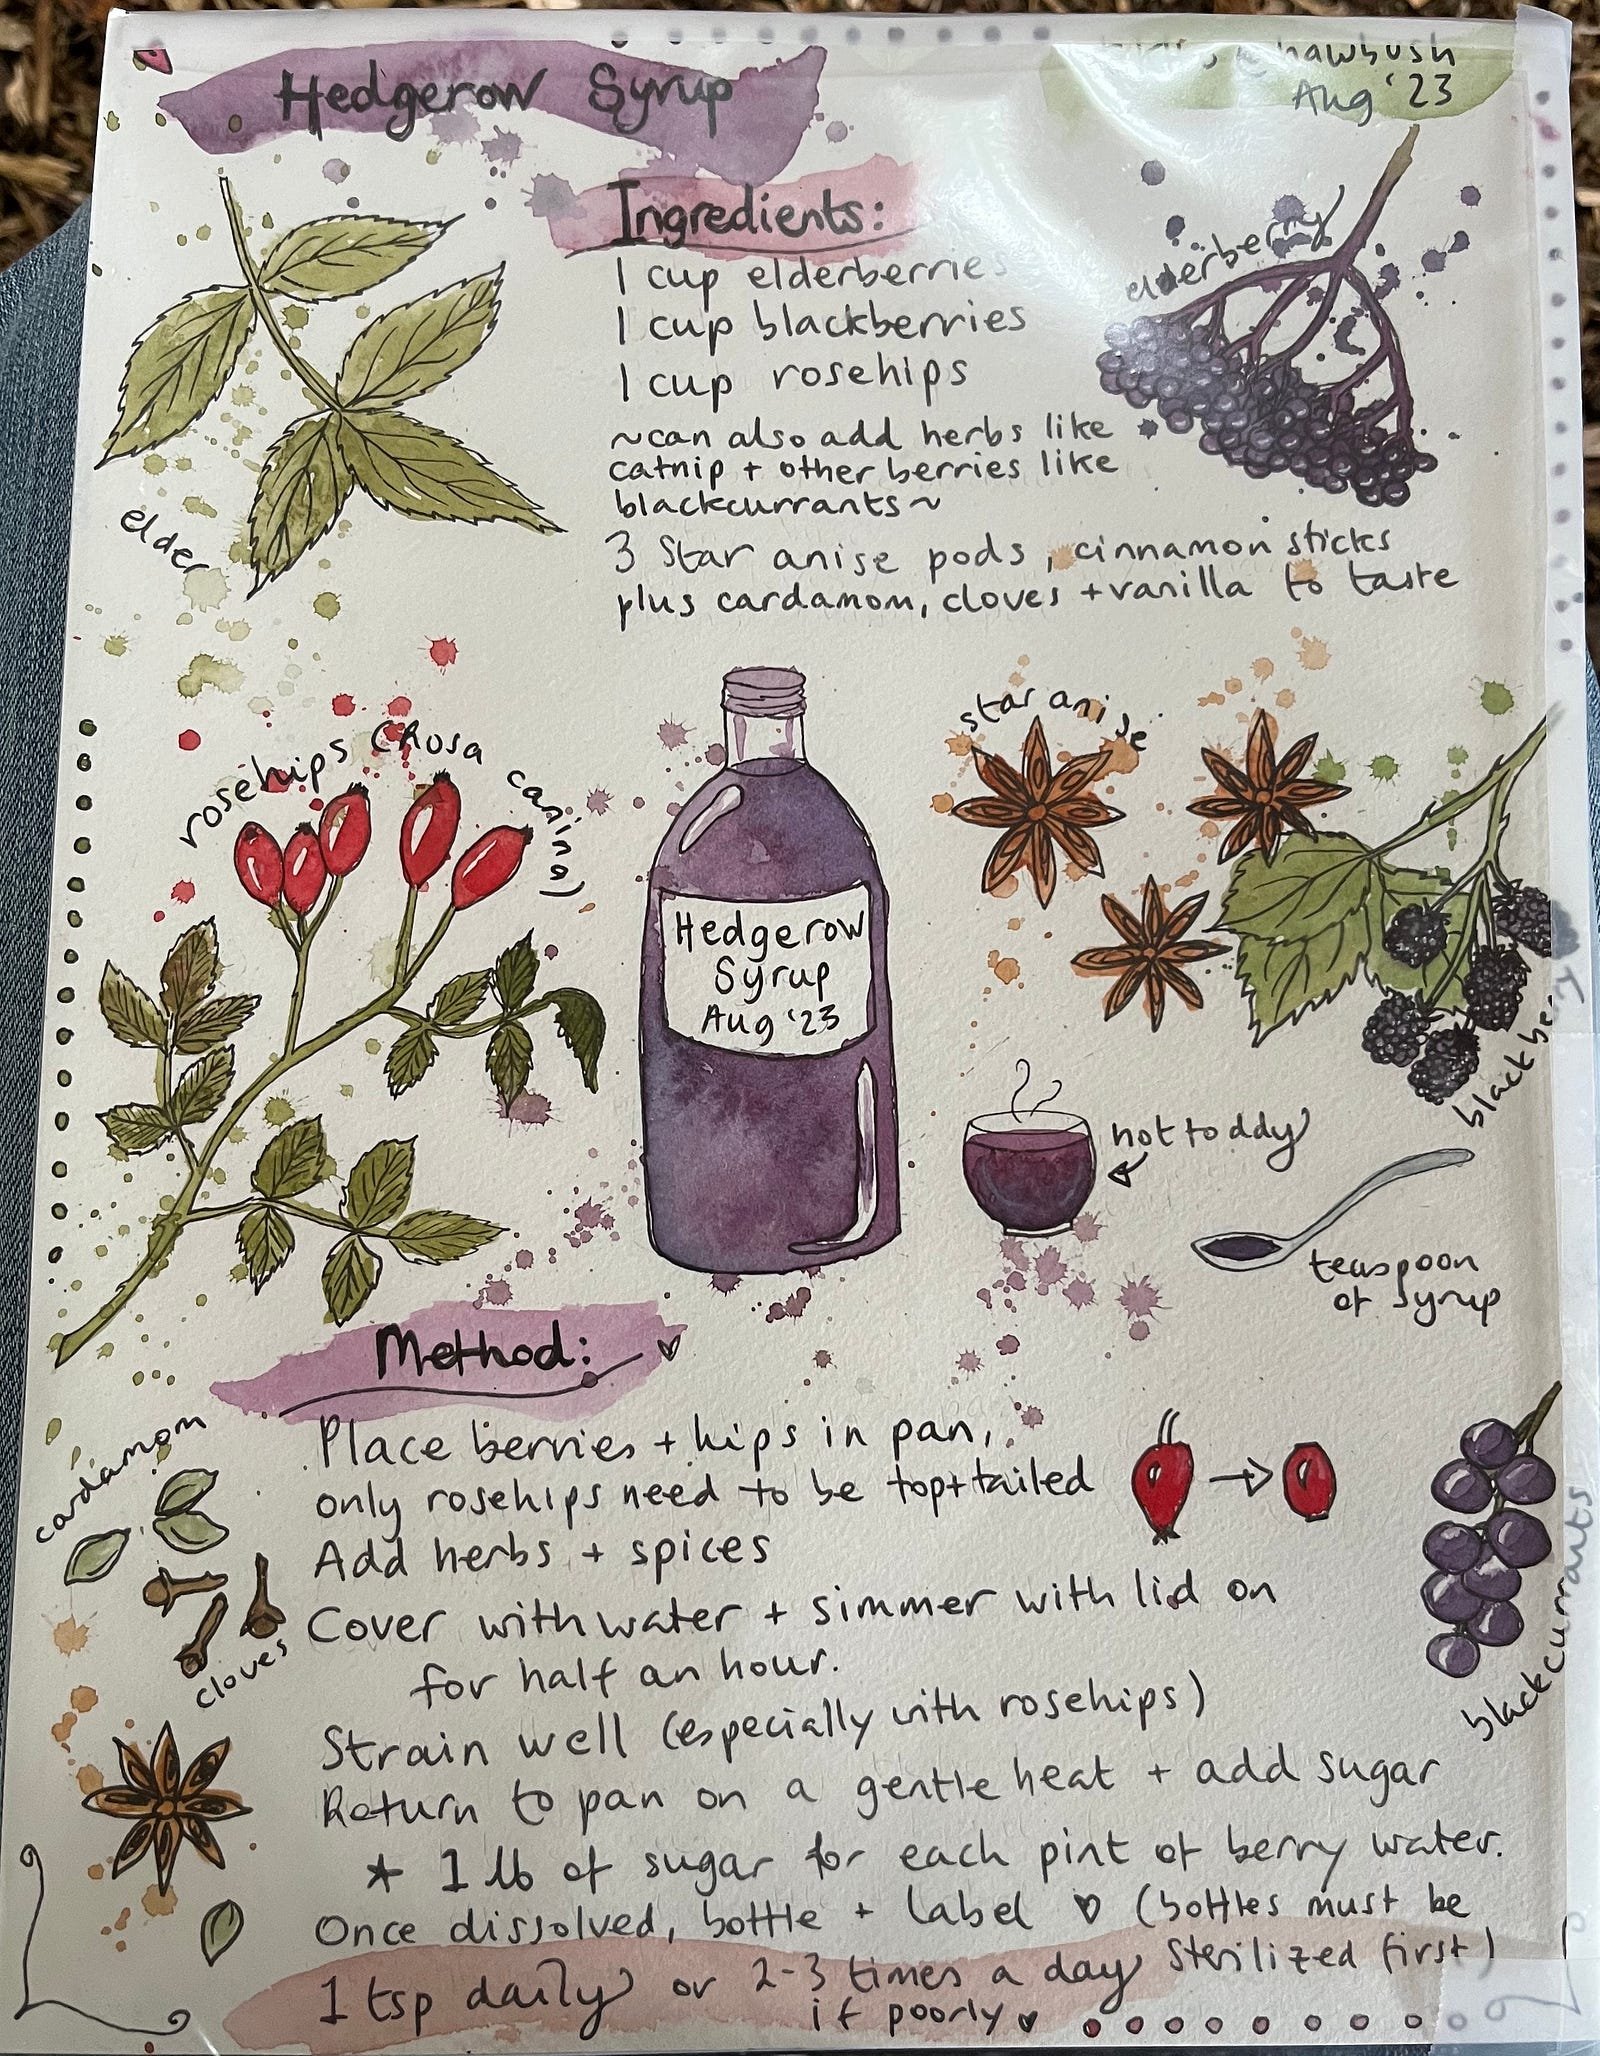 Hedgerow Syrup
hawbush
Aug '23
Ingredients:
1 cup elderberries
1 cup blackberries
1 cup rosehips
~can also add herbs like
catnip + other berries like
blackcurrants~
3 Star anise pods, cinnamon sticks
plus cardamom, cloves + vanilla to taste
elderberry
elder
rosehips (Rosa canina)
star anise
Hedgerow
Syrup
Aug '23
blackberry
hot toddy
teaspoon
of syrup
Method:
Place berries + hips in pan,
only rosehips need to be top+tailed
Add herbs + spices
Cover with water + simmer with lid on
for half an hour.
Strain well (especially with rosehips)
Return to pan on a gentle heat + add sugar
* 1 lb of sugar for each pint of berry water.
Once dissolved, bottle + label ♡ (bottles must be
sterilized first)
1 tsp daily or 2-3 times a day
if poorly ♥
cardamom
cloves
blackcurrants